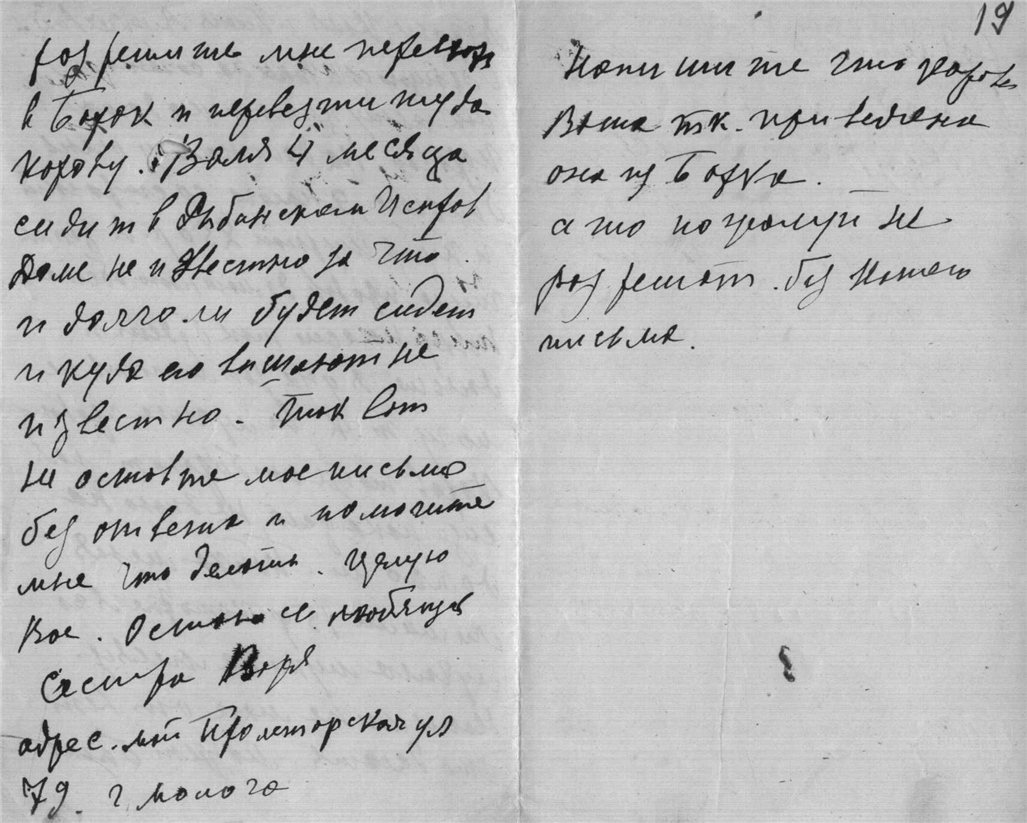 19
разрешите мне переехать
в Борок и перевезти туда
корову. Валя 4 месяца
сидит в Рыбанском Исправ
доме не известно за что.
и долго ли будет сидет
и куда его вышлют не
известно. так вот
не оставте мое письмо
без ответа и помогите
мне что делать. Целую
Вас. Остаюсь любящая
Сестра Варя
адрес. Пролетарская ул
79. г. молога
Напишите что корова
Ваша т.к. приведена
она из Борка.
а то пожалуй не
разрешат. без Вашего
письма.